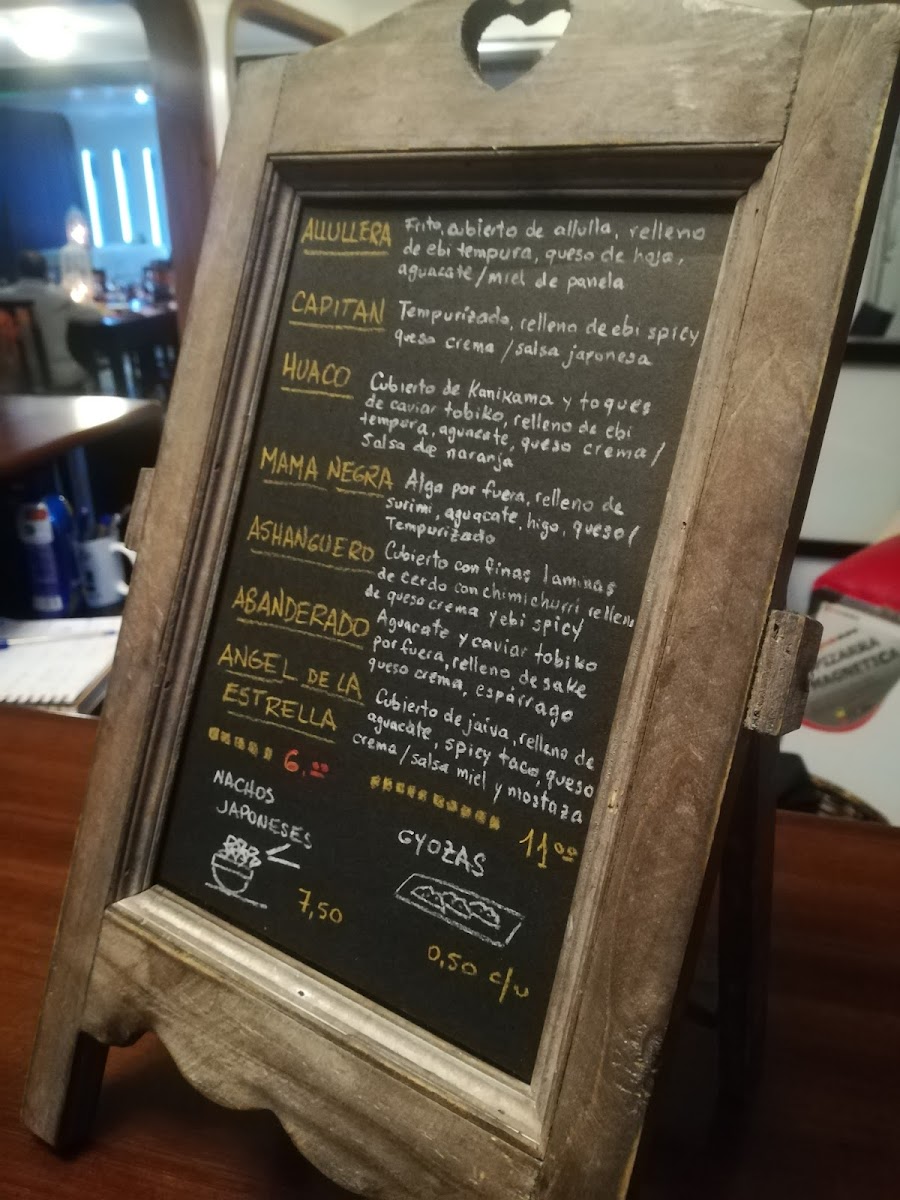 ALLULLERA Frito, cubierto de allulla, relleno
de ebi tempura, queso de hoja,
aguacate/miel de panela
CAPITAN Tempurizado, relleno de ebi spicy
queso crema / salsa japonesa
HUACO Cubierto de Kanikama y toques
de caviar tobiko, relleno de ebi
tempura, aguacate, queso crema /
Salsa de naranja
MAMA NEGRA Alga por fuera, relleno de
surimi, aguacate, higo, queso/
Tempurizado
ASHANGUERO Cubierto con finas laminas
de cerdo con chimichurri relleno
de queso crema y ebi spicy
ABANDERADO Aguacate y caviar tobiko
por fuera, relleno de sake
queso crema, espárrago
ANGEL DE LA
ESTRELLA Cubierto de jaiva, relleno de
aguacate, spicy taco, queso
crema/salsa miel y mostaza
6.00
11.00
NACHOS
JAPONESES
7,50
GYOZAS
0,50 c/u
PIZARRA
MAGNETICA